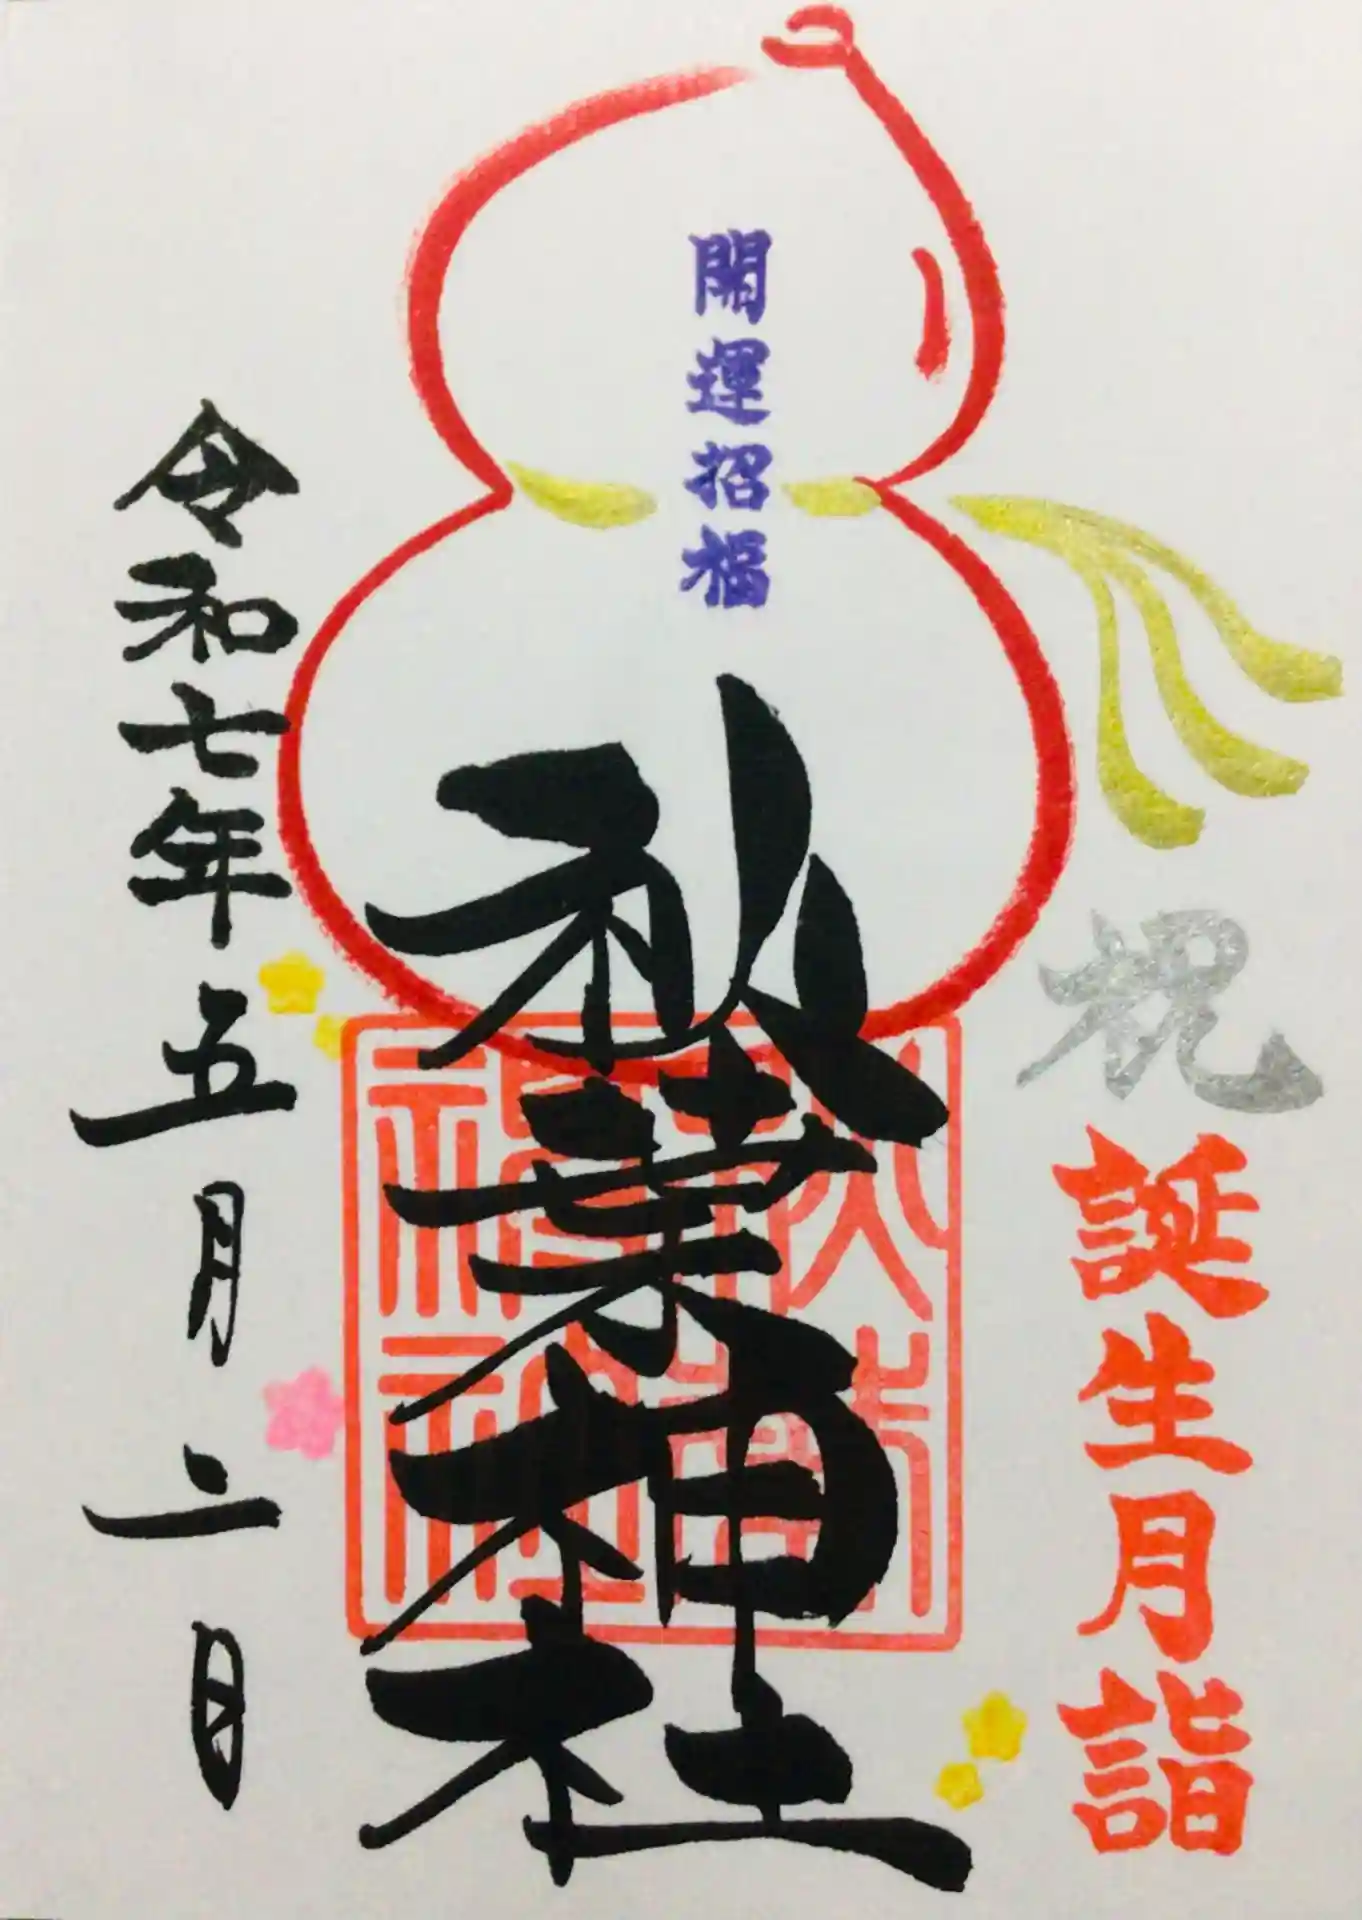 祝
誕生月詣
開運招福
秋葉神社
令和七年五月二日